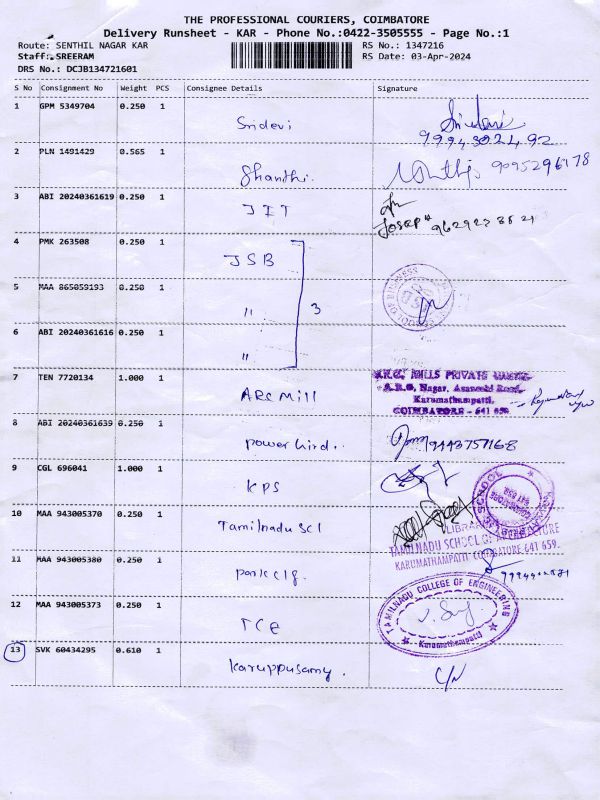 THE PROFESSIONAL COURIERS, COIMBATORE
Delivery Runsheet - KAR - Phone No.:0422-3505555 - Page No.:1
Route: SENTHIL NAGAR KAR RS No.: 1347216
Staff: SREERAM RS Date: 03-Apr-2024
DRS No.: DCJB134721601
S No Consignment No Weight PCS Consignee Details Signature
1 GPM 5349704 0.250 1 Sridevi
2 PLN 1491429 0.565 1 Shanthi.
3 ABI 20240361619 0.250 1 JIT
4 PMK 263508 0.250 1 JSB
5 MAA 865059193 0.250 1 " 3
6 ABI 20240361616 0.250 1 "
7 TEN 7720134 1.000 1 ARC Mill
A.R.C. MILLS PRIVATE
Karumathampatti,
COIMBATORE - 641 659.
8 ABI 20240361639 0.250 1 9443757168
9 CGL 696041 1.000 1 KPS
10 MAA 943005370 0.250 1 Tamilnadu SCI
TAMILNADU SCHOOL OF ARCHITECTURE
KARUMATHAMPATTI, COIMBATORE 641 659.
11 MAA 943005380 0.250 1
12 MAA 943005373 0.250 1 TCE
TAMILNADU COLLEGE OF ENGINEERING
Karumathampatti
13 SVK 60434295 0.610 1 Karuppusamy.